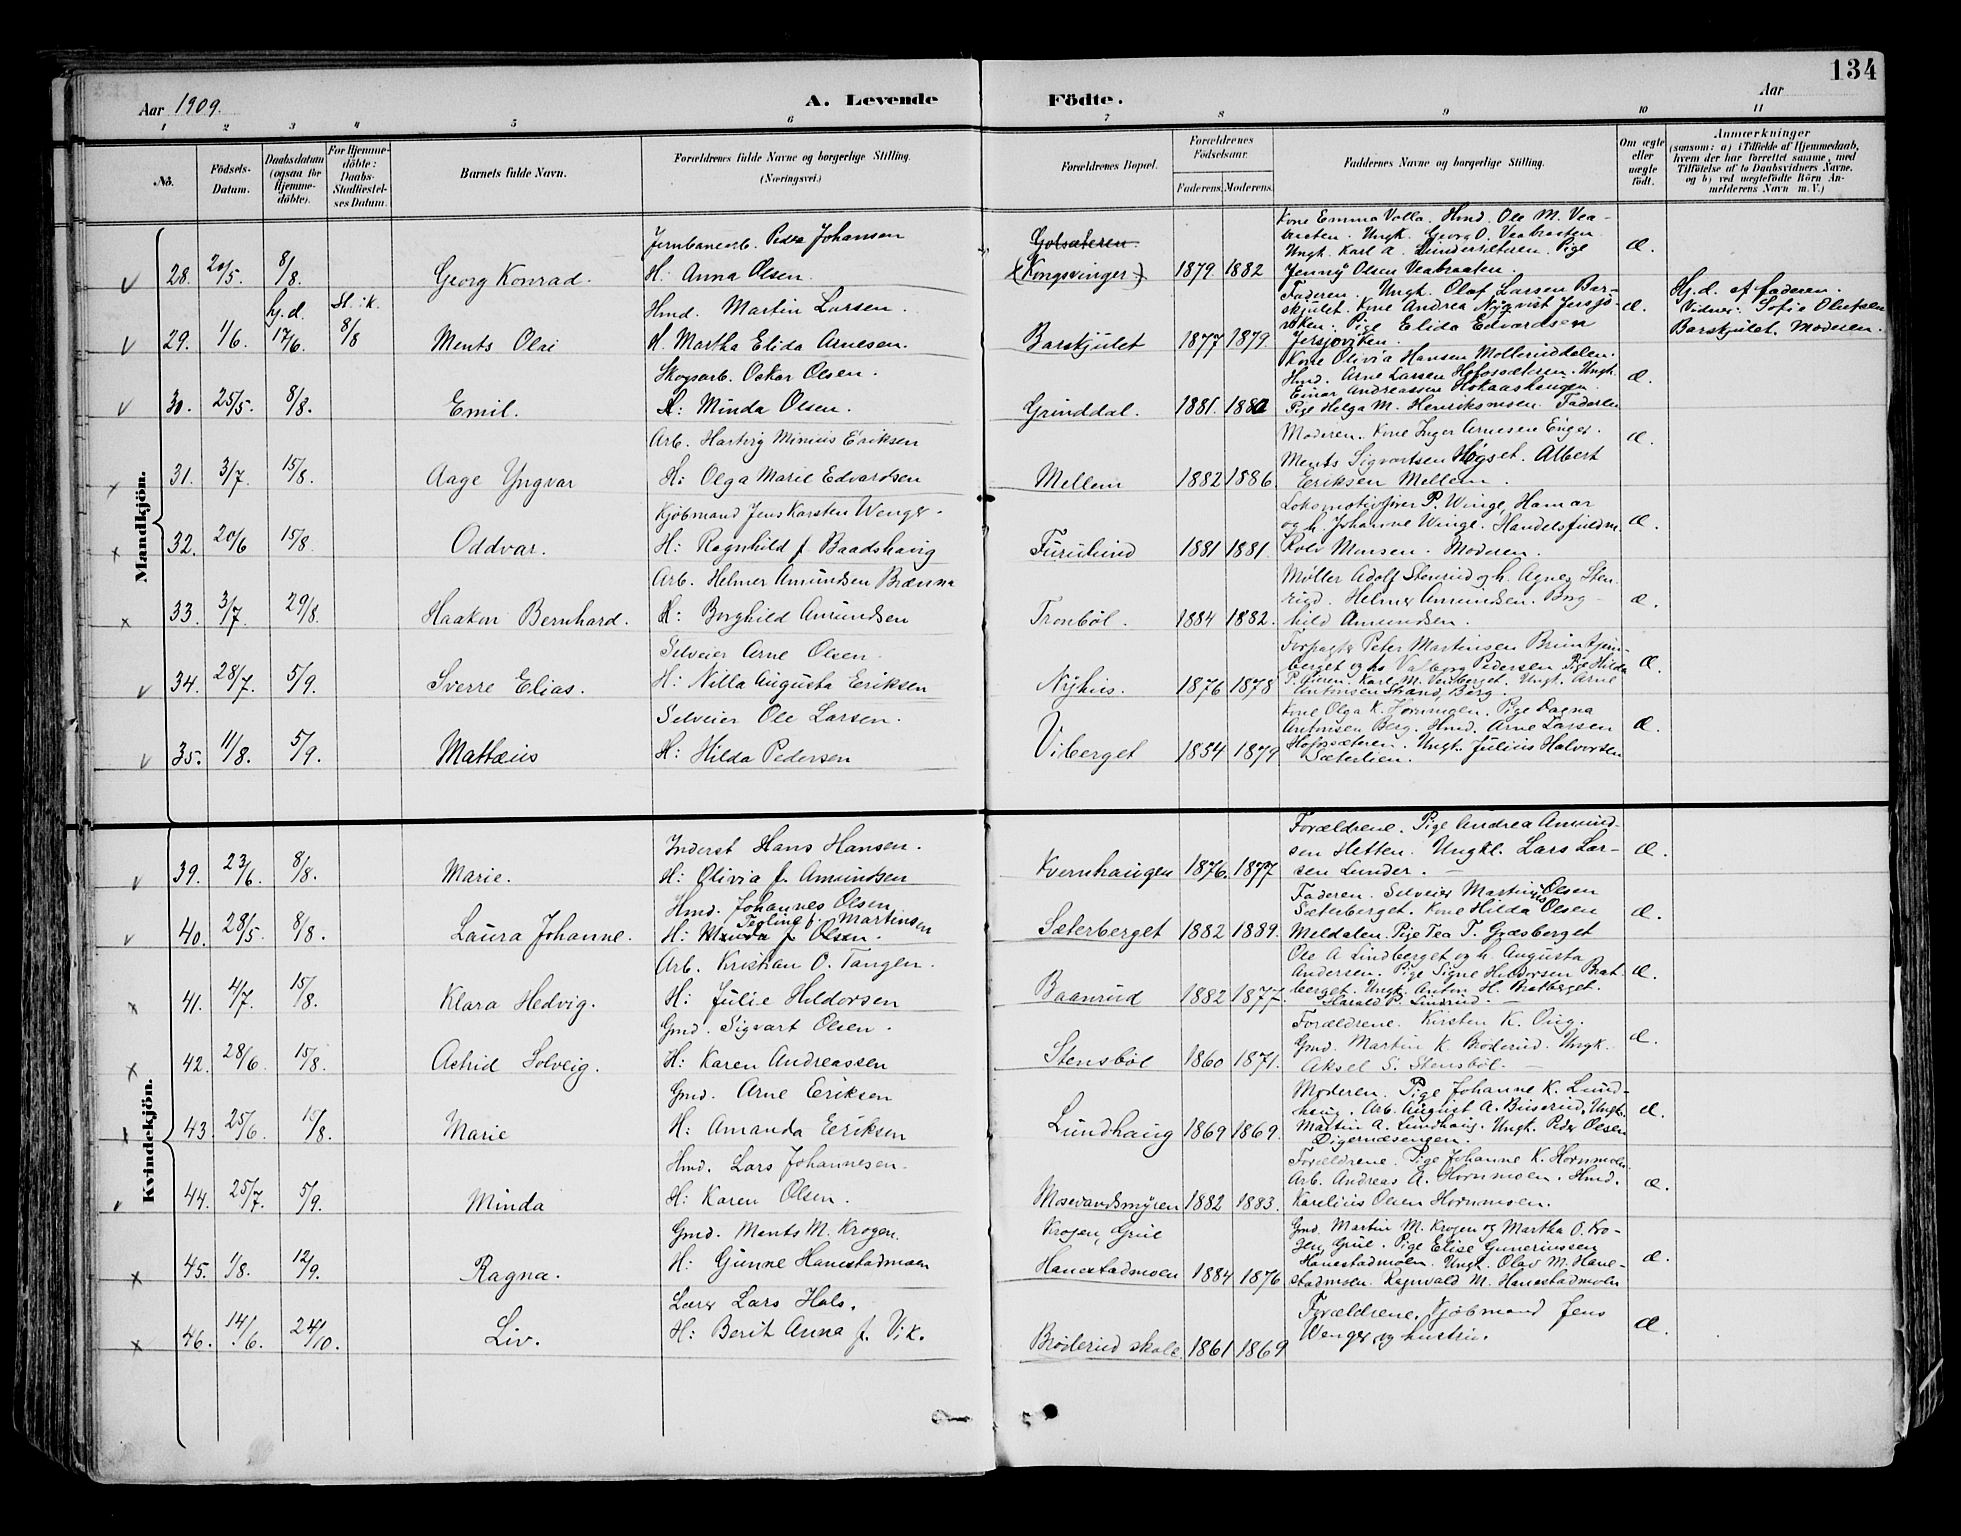 134
Aar 1909.
A. Levende Födte.
Aar
1 2 3 4 5 6 7 8 9 10 11
No.
Födsels-Datum.
Daabsdatum (ogsaa for Hjemme-döbte).
For Hjemme-döbte: Daabs-Stadfæstel-ses Datum.
Barnets fulde Navn.
Forældrenes fulde Navne og borgerlige Stilling. (Næringsvei.)
Forældrenes Bopæl.
Forældrenes Födselsaar.
Faderens. Moderens.
Faddernes Navne og borgerlige Stilling.
Om ægte eller uægte födt.
Anmærkninger
(saasom: a) i Tilfælde af Hjemmedaab, hvem der har forrettet samme, med Tilföielse af to Daabsvidners Navne, og b) ved uægtefödte Börn Anmelderens Navn m. V.)
Mandkjön.
28. 20/5 8/8. Georg Konrad.
Jernbanearb. Peder Johansen
H: Anna Olsen.
Golsæteren.
(Kongsvinger) 1879 1882
Kone Emma Volla. Hmd. Ole M. Vea-
braaten. Ungk. Georg O. Veabraaten
Ungk. Karl A. Lindersæteren. Pige
Jenny Olsen Veabraaten.
Æ.
29. 1/6 hj.d. 17/6. St.:k. 8/8 Ments Olai
Hmd. Martin Larsen.
H. Martha Elida Arnesen.
Barskjulet 1877 1879
Faderen. Ungk. Olaf Larsen Bar-
skjulet. Kone Andrea Nyqvist Jersjö-
viken. Pige Elida Edvardsen
Jersjoviken.
Æ.
Hj.d. af faderen.
Vidner: Sofie Olufsen
Barskjulet, Moderen.
30. 25/5. 8/8. Emil.
Skogsarb. Oskar Olsen.
H: Minda Olsen.
Grinddal. 1881. 1882
Kone Olivia Hansen Mölleruddalen.
Hmd. Arne Larsen Hofossæteren. Ungk.
Einar Andreassen Hokaashaugen.
Pige Helga M. Henriksmoen. Faderen
Æ.
31. 3/7. 15/8. Aage Yngvar
Arb. Hartvig Minius Eriksen
H: Olga Marie Edvardsen
Mellem 1882 1886.
Moderen. Kone Inger Arnesen Enger.
Ments Sigvartsen Høgset. Albert
Eriksen Mellem.
Æ.
32. 20/6 15/8. Oddvar.
Kjöbmand Jens Karsten Wenger.
H: Ragnhild f. Baadshaug
Furulund 1881 1881
Lokomotivfører P. Winge, Hamar
og h. Johanne Winge. Handelsfuldm.
Rolv Monsen. Moderen.
Æ.
33. 3/7. 29/8. Haakon Bernhard.
Arb. Helmer Amundsen Brænna
H: Borghild Amundsen
Tronböl. 1884 1882.
Møller Adolf Stenrud og h. Agnes Sten-
rud. Helmer Amundsen. Borg-
hild Amundsen.
Æ.
34. 28/7. 5/9. Sverre Elias.
Selveier Arne Olsen.
H: Nilla Augusta Eriksen
Nyhus. 1876 1878
Forpagter Peter Martinsen Bruntjern-
berget og h. Valborg Pedersen. Pige Hilda
Karl M. Ungk. Arne
Antonsen Strand, Berg.
Æ.
35. 11/8. 5/9. Mattæus
Selveier Ole Larsen.
H: Hilda Pedersen
Viberget 1854 1879
Kone Olga K. Hornmoen. Pige Dagna
Antonsen Berg. Hmd. Arne Larsen
Hofossæteren. Ungk. Julius Halvorsen
Sæterlien.
Æ.
Kvindekjön.
39. 23/6. 8/8. Marie.
Inderst Hans Hansen.
H: Olivia f. Amundsen
Kvernhaugen 1876. 1877
Forældrene. Pige Andrea Amund-
sen Hetten. Ungkl. Lars Lar-
sen Lunder.
Æ.
40. 28/5. 8/8. Laura Johanne.
Hmd. Johannes Olsen
Teoline f. Martinsen
H: Minda f Olsen.
Sæterberget 1882 1889.
Faderen. Selveier Martinius Olsen
Sæterberget. Kone Hilda Olsen
Moldalen. Pige Tea T. Græsberget
Æ.
41. 4/7. 15/8. Klara Hedvig.
Arb. Kristian O. Tangen.
H: Julie Hildorsen
Baanrud 1882 1877.
Ole A Lindberget og h. Augusta
Andersen. Pige Signe Hildorsen Brat
berget. Ungk. Anton H. Bratberget.
Harald P. Lindrud.
Æ.
42. 28/6. 15/8. Astrid Solveig.
Gmd. Sigvart Olsen.
H: Karen Andreassen
Stensböl 1860 1871.
Forældrene. Kirsten K. Oug.
Gmd. Martin K. Bröderud. Ungk.
Aksel S. Stensböl.
Æ.
43. 25/6. 15/8. Marie
Gmd. Arne Eriksen
H: Amanda Eriksen
Lundhaug 1869 1869.
Moderen. Pige Johanne K. Lund-
haug. Arb. August A. Buserud. Ungk.
Martin A. Lundhaug. Ungk. Peder Olsen
Digernæsengen.
Æ.
44. 25/7. 5/9. Minda
Hmd. Lars Johannesen.
H: Karen Olsen.
Mosevandsmyren 1882 1883.
Forældrene. Pige Johanne K. Hornmoen.
Arb. Andreas A. Hornmoen. Hmd.
Karelius Olsen Hornmoen.
Æ.
45. 1/8. 12/9. Ragna.
Gmd. Ments M. Krogen.
H: Gunne Hanestadmoen
Krogen, Grue
Hanestadmoen 1884 1876
Gmd. Martin M. Krogen og Martha O. Kro-
gen, Grue. Pige Elise Guneriussen
Hanestadmoen. Ungk. Olav M. Hane-
stadmoen. Ragnvald M. Hanestadmoen
Æ.
46. 14/6. 24/10. Liv.
Lærer Lars Hals.
H: Berit Anna f. Vik.
Bröderud skole. 1861 1869
Forældrene. Kjöbmand Jens
Wenger og hustru.
Æ.